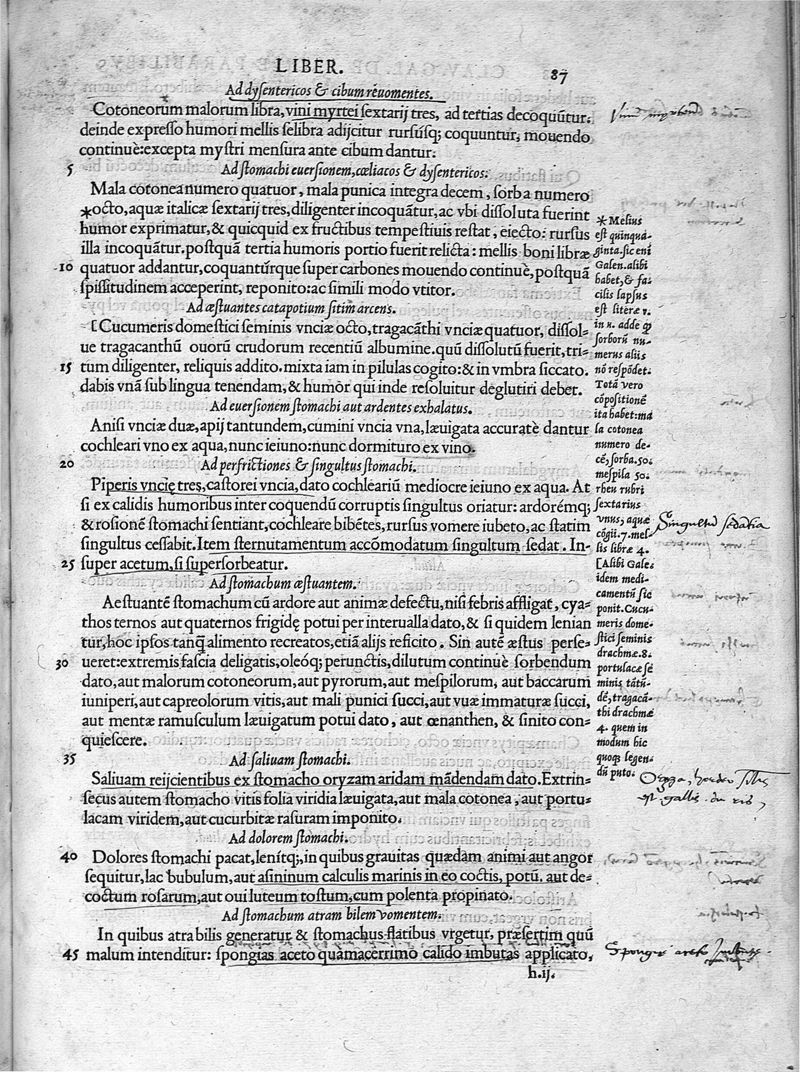 LIBER. 87
Ad dyſentericos & cibum reuomentes.
Cotoneorum malorum libra, vini myrtei ſextarij tres, ad tertias decoquūtur:
deinde expreſſo humori mellis ſelibra adijcitur rurſusq; coquuntur, mouendo
continuè: excepta myſtri menſura ante cibum dantur.
5 Ad ſtomachi euerſionem, cœliacos & dyſentericos.
Mala cotonea numero quatuor, mala punica integra decem, ſorba numero
*octo, aquæ italicæ ſextarij tres, diligenter incoquātur, ac vbi diſſoluta fuerint
humor exprimatur, & quicquid ex fructibus tempeſtiuis reſtat, eiecto: rurſus
illa incoquātur. poſtquā tertia humoris portio fuerit relicta: mellis boni libræ
10 quatuor addantur, coquanturq́ue ſuper carbones mouendo continuè, poſtquā
ſpiſſitudinem acceperint, reponito: ac ſimili modo vtitor.
Ad æſtuantes catapotium ſitim arcens.
[Cucumeris domeſtici ſeminis vnciæ octo, tragacāthi vnciæ quatuor, diſſol-
ue tragacanthū ouorū crudorum recentiū albumine. quū diſſolutū fuerit, tri-
15 tum diligenter, reliquis addito. mixta iam in pilulas cogito: & in vmbra ſiccato.
dabis vnā ſub lingua tenendam, & humor qui inde reſoluitur deglutiri debet.
Ad euerſionem ſtomachi aut ardentes exhalatus.
Aniſi vnciæ duæ, apij tantundem, cumini vncia vna, læuigata accuratè dantur
cochleari vno ex aqua, nunc ieiuno: nunc dormituro ex vino.
20 Ad perfrictiones & ſingultus ſtomachi.
Piperis vncię tres, caſtorei vncia, dato cochleariū mediocre ieiuno ex aqua. At
ſi ex calidis humoribus inter coquendū corruptis ſingultus oriatur: ardorēmq;
& roſionē ſtomachi ſentiant, cochleare bibētes, rurſus vomere iubeto, ac ſtatim
ſingultus ceſſabit. Item ſternutamentum accōmodatum ſingultum ſedat. In-
25 ſuper acetum, ſi ſuperſorbeatur.
Ad ſtomachum æſtuantem.
Aeſtuantē ſtomachum cū ardore aut animæ defectu, niſi febris affligat, cya-
thos ternos aut quaternos frigidę potui per interualla dato, & ſi quidem lenian
tur, hoc ipſos tanq̄ alimento recreatos, etiā alijs reficito. Sin autē æſtus perſe-
30 ueret: extremis faſcia deligatis, oleóq; perunctis, dilutum continuè ſorbendum
dato, aut malorum cotoneorum, aut pyrorum, aut meſpilorum, aut baccarum
iuniperi, aut capreolorum vitis, aut mali punici ſucci, aut vuæ immaturæ ſucci,
aut mentæ ramuſculum læuigatum potui dato, aut œnanthen, & ſinito con-
quieſcere.
35 Ad ſaliuam ſtomachi.
Saliuam reijcientibus ex ſtomacho oryzam aridam mādendam dato. Extrin-
ſecus autem ſtomacho vitis folia viridia læuigata, aut mala cotonea, aut portu-
lacam viridem, aut cucurbitæ raſuram imponito.
Ad dolorem ſtomachi.
40 Dolores ſtomachi pacat, lenítq;, in quibus grauitas quædam animi aut angor
ſequitur, lac bubulum, aut aſininum calculis marinis in eo coctis, potū. aut de-
coctum roſarum, aut oui luteum toſtum, cum polenta propinato.
Ad ſtomachum atram bilem vomentem.
In quibus atra bilis generatur & ſtomachus flatibus vrgetur, præſertim quū
45 malum intenditur: ſpongias aceto quàm acerrimo calido imbutas applicato,
h.ij.
*Melius
eſt quinqua-
ginta. ſic enī
Galen. alibi
habet, & fa-
cilis lapſus
eſt literæ r.
in u. adde q̄
ſorborū nu-
merus aliis
nō reſpōdet.
Totā vero
cōpoſitionē
ita habet: ma
la cotonea
numero de-
cē, ſorba. 50.
meſpila 50.
rheu rubri
ſextarius
vnus, aquæ
cōgii. 7. mel-
lis libræ 4.
[Alibi Gale.
idem medi-
camentū ſic
ponit. Cucu-
meris dome-
ſtici ſeminis
drachmæ. 8.
portulacæ ſē
minis tātū-
dē, tragacā-
thi drachmæ
4. quem in
modum hic
quoq; legen-
dū puto.
Singultū ſedātia